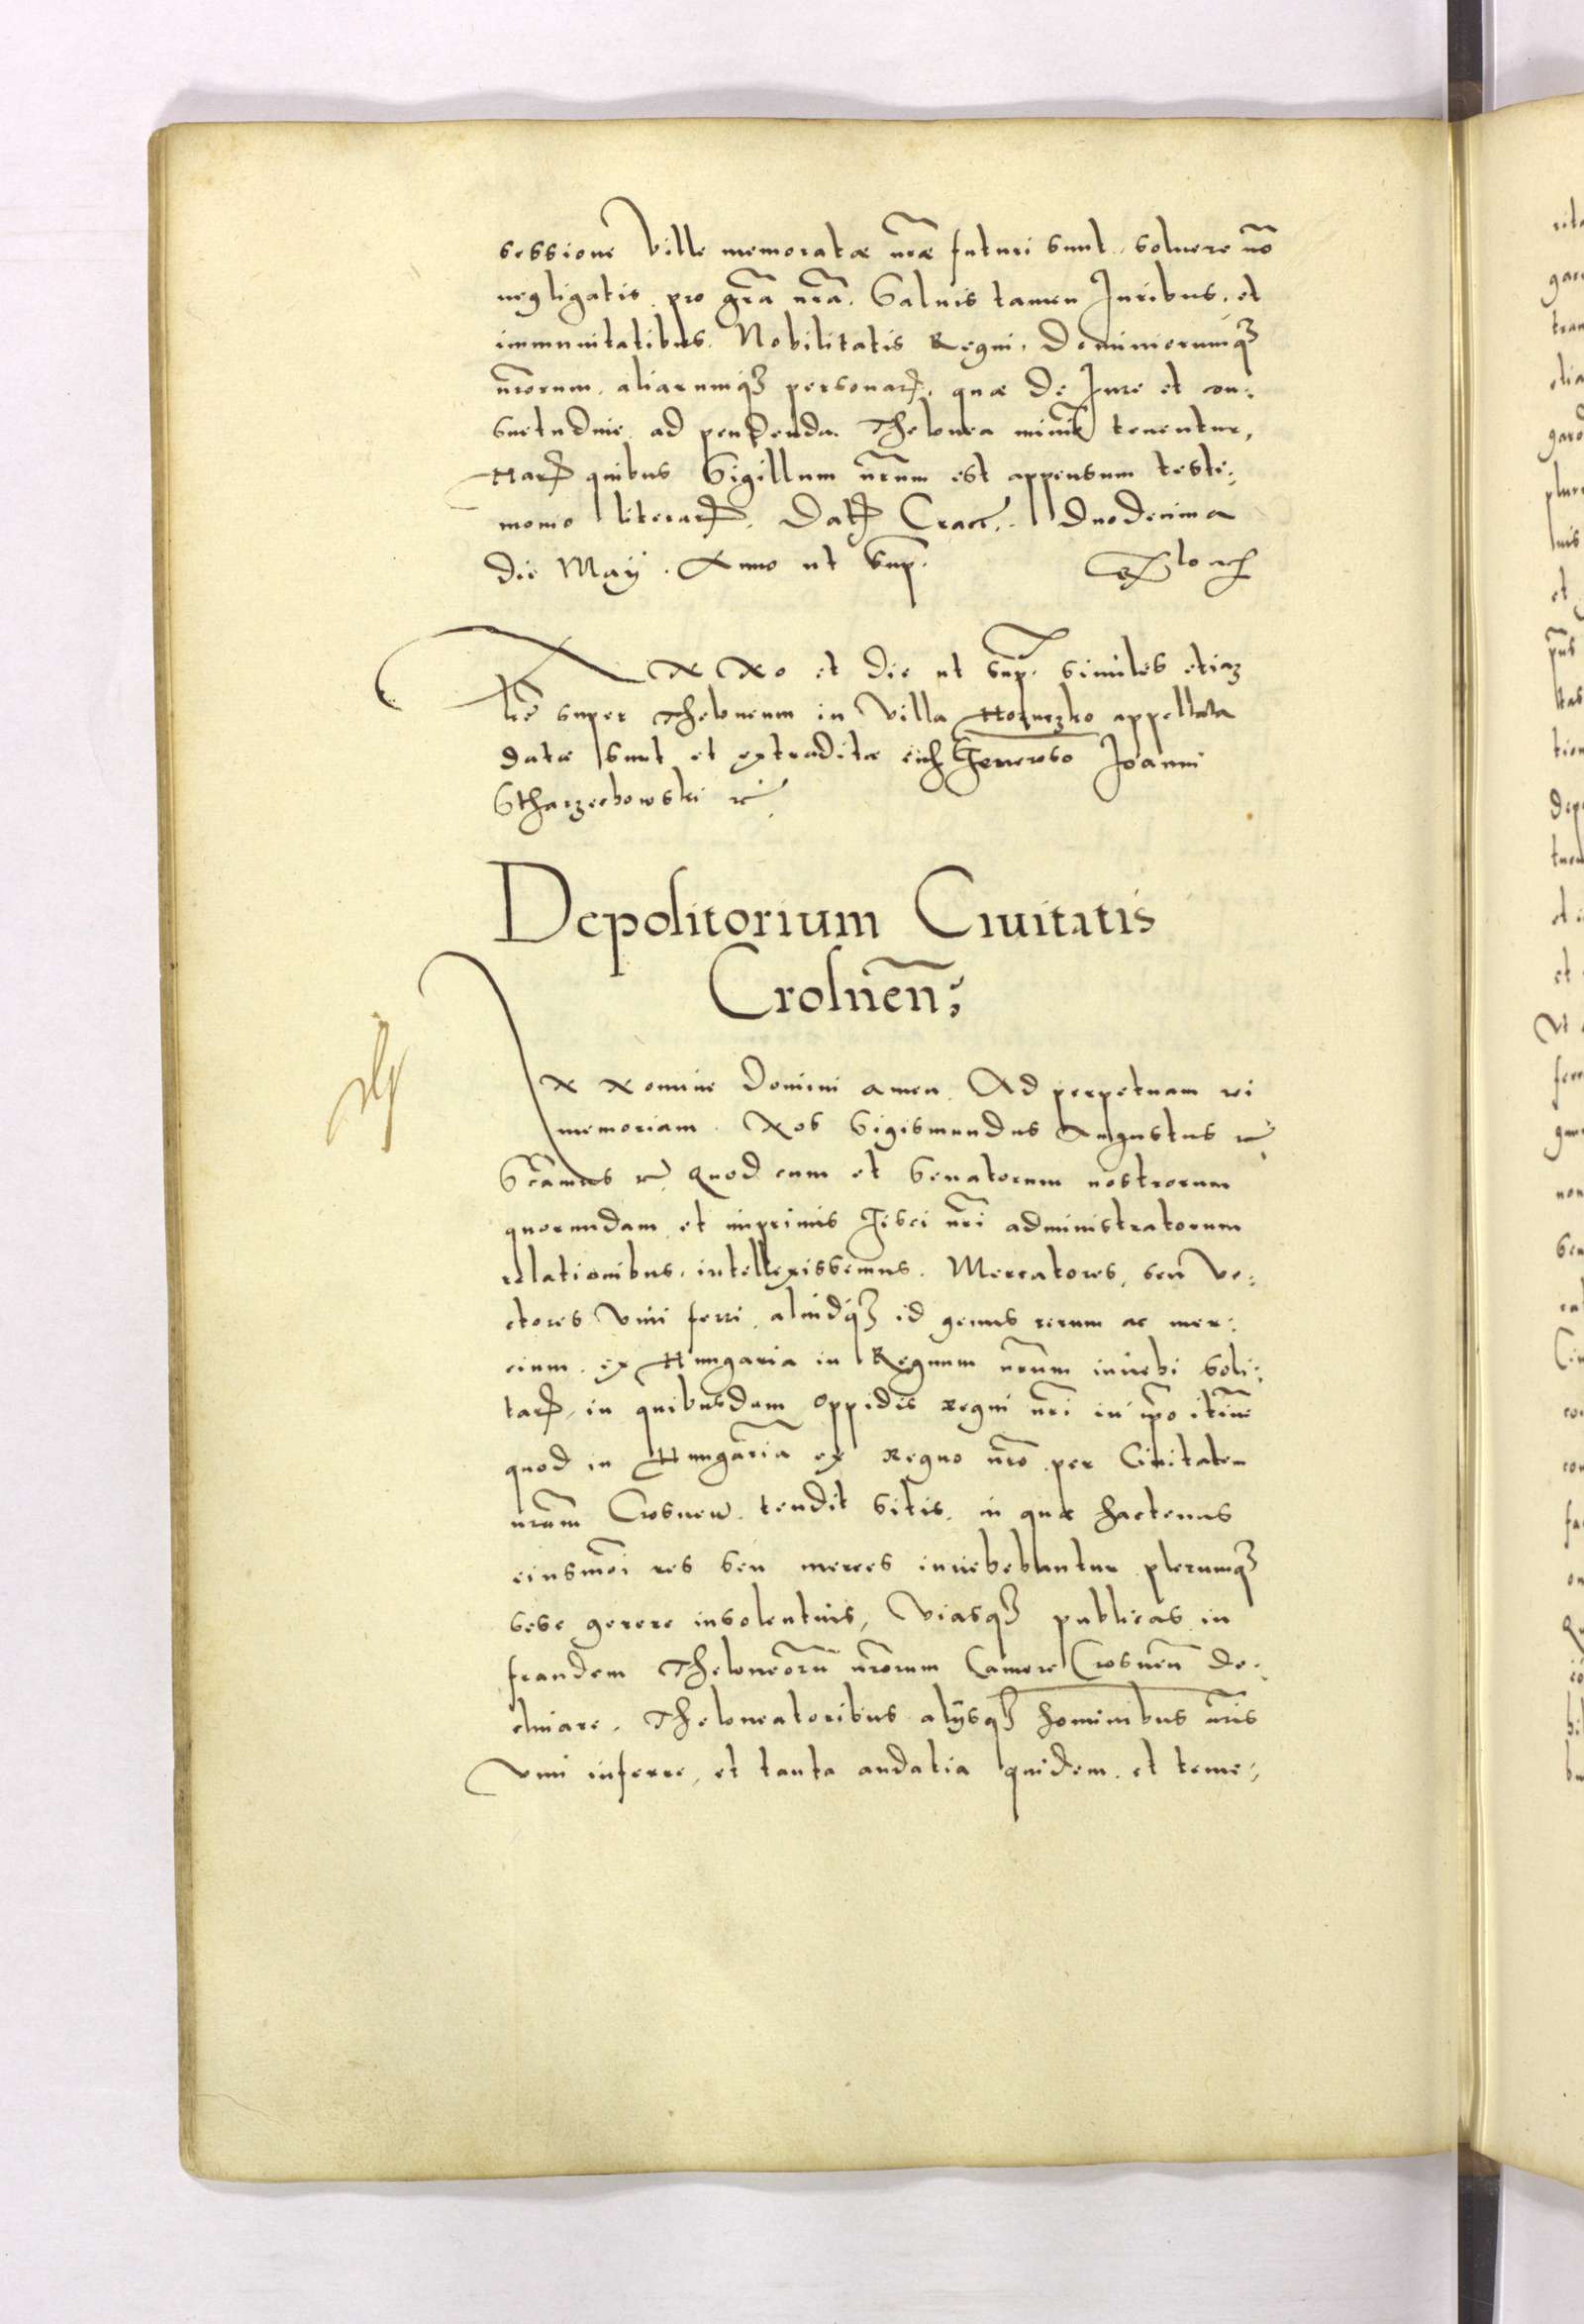 sessione Ville memoratae nrae futuri sunt, soluere no
negligatis pro gra nra. Saluis tamen Juribus, et
immunitatibus Nobilitatis Regni, Dominiorumq3
nrorum, aliarumq3 personar, quae De Jure et con:
suetudine ad pendenda Thelonea minime tenentur,
Har quibus Sigillum nrum est appensum testi:
monio literar. Dat Crac. Duodecima
die Maij. Anno ut sup.
ANNo et die ut sup. similes etiam
lre super Theloneum in Villa appellata
datae sunt et extraditae Generoso Joanni
Stharzechowski etc.
Depositorium Ciuitatis
Crosnen:
IN Nomine Domini amen. Ad perpetuam rei
memoriam. Nos Sigismundus Augustus etc.
Scamus etc. Quod cum et Senatorum nostrorum
quorundam et imprimis Fisci nri administratorum
relationibus intellexissemus. Mercatores, seu Ve:
ctores Vini ferri, aliudq3 id genus rerum ac mer:
cium ex Hungaria in Regnum nrum inuehi soli:
tar, in quibusdam Oppidis Regni nri in ipso itinere
quod in Hungaria ex Regno nro per Ciuitatem
nram Crosnen tendit sitis, in quae hactenus
eiusmoi res seu merces inuehebantur plerumq3
sese gerere insolentius, Viasq3 publicas in
fraudem Theloneoru nrorum Camere Crosnen de:
uiare, Theloneatoribus alijsq3 hominibus nris
vim inferre, et tanta audatia quidem et teme: